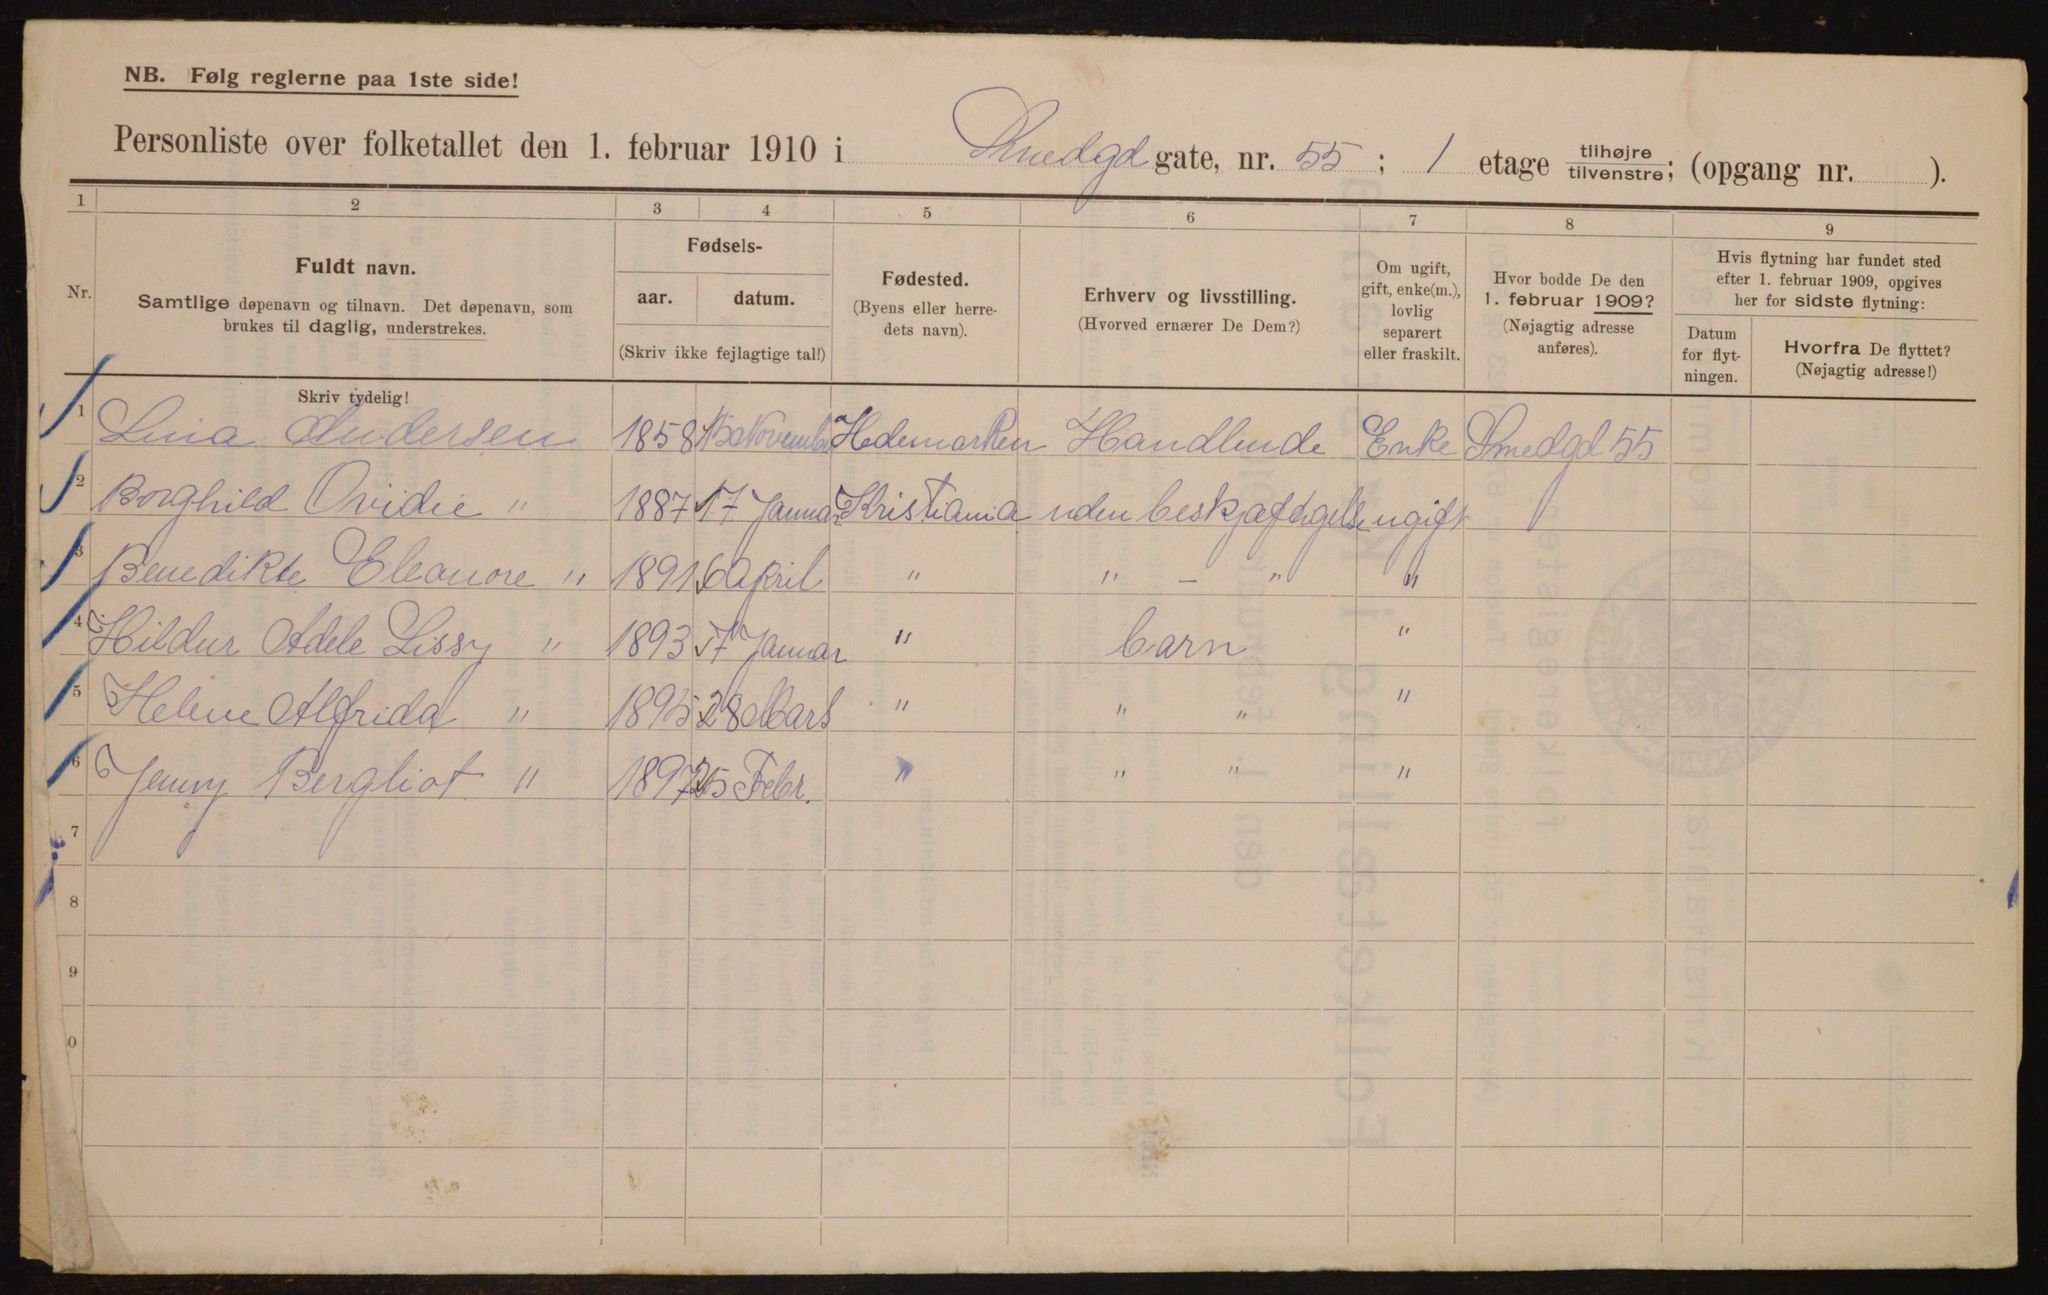 NB. Følg reglerne paa 1ste side!
Personliste over folketallet den 1. februar 1910 i Smedgd gate, nr. 55 ; 1 etage tilhøjre tilvenstre; (opgang nr. ).
1 2 3 4 5 6 7 8 9
Nr.
Fuldt navn.
Samtlige døpenavn og tilnavn. Det døpenavn, som
brukes til daglig, understrekes.
Fødsels-
aar. datum.
(Skriv ikke fejlagtige tal!)
Fødested.
(Byens eller herre-
dets navn).
Erhverv og livsstilling.
(Hvorved ernærer De Dem?)
Om ugift,
gift, enke(m.),
lovlig
separert
eller fraskilt.
Hvor bodde De den
1. februar 1909?
(Nøjagtig adresse
anføres).
Hvis flytning har fundet sted
efter 1. februar 1909, opgives
her for sidste flytning:
Datum
for flyt-
ningen.
Hvorfra De flyttet?
(Nøjagtig adresse!)
Skriv tydelig!
1 Lina Andersen 1858 November Hedemarken Handlende Enke Smedgd 55
2 Borghild Ovidie " 1887 17 Januar Kristiania uden beskjæftigelse ugift
3 Benedikte Eleanore " 1891 6 April " " - " "
4 Hildur Adele Lissy " 1893 17 Januar " barn "
5 Helene Alfrida " 1895 28 Mars " " " "
6 Jenny Bergliot " 1897 25 Febr. " " " "
7
8
9
0